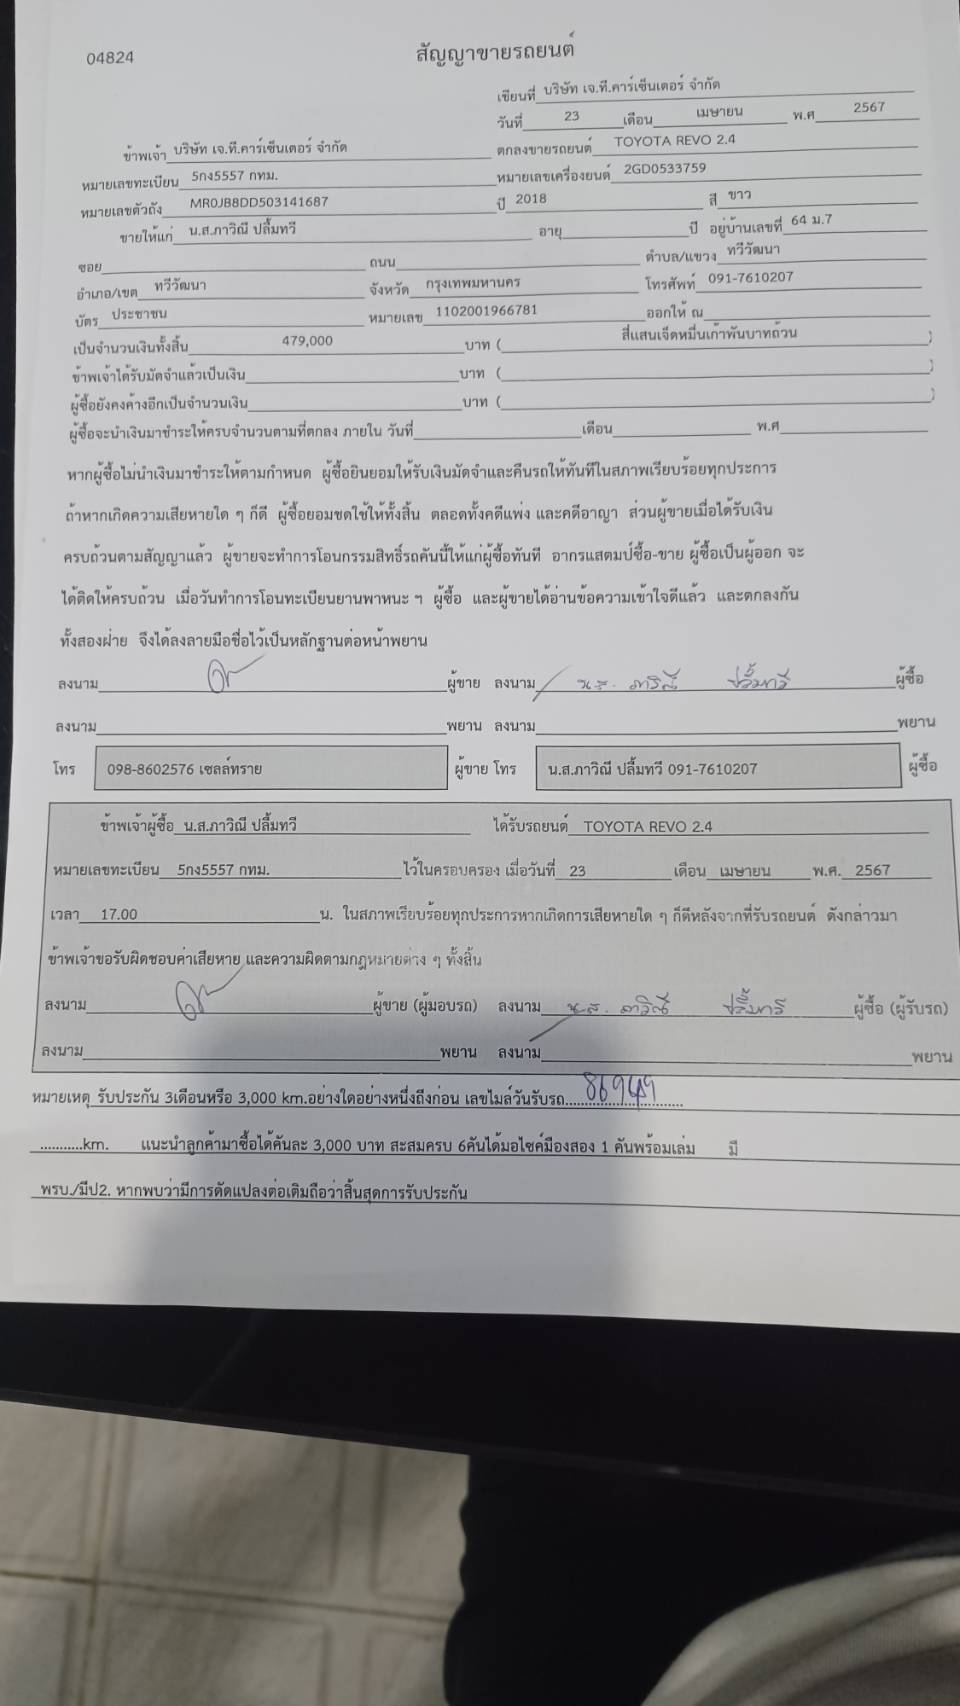 04824
สัญญาขายรถยนต์
เขียนที่ บริษัท เจ.ที.คาร์เซ็นเตอร์ จำกัด
วันที่ 23 เดือน เมษายน พ.ศ 2567
ข้าพเจ้า บริษัท เจ.ที.คาร์เซ็นเตอร์ จำกัด ตกลงขายรถยนต์ TOYOTA REVO 2.4
หมายเลขทะเบียน 5กง5557 กทม. หมายเลขเครื่องยนต์ 2GD0533759
หมายเลขตัวถัง MR0JB8DD503141687 ปี 2018 สี ขาว
ขายให้แก่ น.ส.ภาวิณี ปลื้มทวี อายุ ปี อยู่บ้านเลขที่ 64 ม.7
ซอย ถนน ตำบล/แขวง ทวีวัฒนา
อำเภอ/เขต ทวีวัฒนา จังหวัด กรุงเทพมหานคร โทรศัพท์ 091-7610207
บัตร ประชาชน หมายเลข 1102001966781 ออกให้ ณ
เป็นจำนวนเงินทั้งสิ้น 479,000 บาท ( สี่แสนเจ็ดหมื่นเก้าพันบาทถ้วน )
ข้าพเจ้าได้รับมัดจำแล้วเป็นเงิน บาท ( )
ผู้ซื้อยังคงค้างอีกเป็นจำนวนเงิน บาท ( )
ผู้ซื้อจะนำเงินมาชำระให้ครบจำนวนตามที่ตกลง ภายใน วันที่ เดือน พ.ศ
หากผู้ซื้อไม่นำเงินมาชำระให้ตามกำหนด ผู้ซื้อยินยอมให้รับเงินมัดจำและคืนรถให้ทันทีในสภาพเรียบร้อยทุกประการ
ถ้าหากเกิดความเสียหายใด ๆ ก็ดี ผู้ซื้อยอมชดใช้ให้ทั้งสิ้น ตลอดทั้งคดีแพ่ง และคดีอาญา ส่วนผู้ขายเมื่อได้รับเงิน
ครบถ้วนตามสัญญาแล้ว ผู้ขายจะทำการโอนกรรมสิทธิ์รถคันนี้ให้แก่ผู้ซื้อทันที อากรแสตมป์ซื้อ-ขาย ผู้ซื้อเป็นผู้ออก จะ
ได้ติดให้ครบถ้วน เมื่อวันทำการโอนทะเบียนยานพาหนะ ฯ ผู้ซื้อ และผู้ขายได้อ่านข้อความเข้าใจดีแล้ว และตกลงกัน
ทั้งสองฝ่าย จึงได้ลงลายมือชื่อไว้เป็นหลักฐานต่อหน้าพยาน
ลงนาม ผู้ขาย ลงนาม น.ส. ภาวิณี ปลื้มทวี ผู้ซื้อ
ลงนาม พยาน ลงนาม พยาน
โทร 098-8602576 เซลล์ทราย ผู้ขาย โทร น.ส.ภาวิณี ปลื้มทวี 091-7610207 ผู้ซื้อ
ข้าพเจ้าผู้ซื้อ น.ส.ภาวิณี ปลื้มทวี ได้รับรถยนต์ TOYOTA REVO 2.4
หมายเลขทะเบียน 5กง5557 กทม. ไว้ในครอบครอง เมื่อวันที่ 23 เดือน เมษายน พ.ศ. 2567
เวลา 17.00 น. ในสภาพเรียบร้อยทุกประการหากเกิดการเสียหายใด ๆ ก็ดีหลังจากที่รับรถยนต์ ดังกล่าวมา
ข้าพเจ้าขอรับผิดชอบค่าเสียหาย และความผิดตามกฎหมายต่าง ๆ ทั้งสิ้น
ลงนาม ผู้ขาย (ผู้มอบรถ) ลงนาม น.ส. ภาวิณี ปลื้มทวี ผู้ซื้อ (ผู้รับรถ)
ลงนาม พยาน ลงนาม พยาน
หมายเหตุ รับประกัน 3เดือนหรือ 3,000 km.อย่างใดอย่างหนึ่งถึงก่อน เลขไมล์วันรับรถ..........
...........km. แนะนำลูกค้ามาซื้อได้คันละ 3,000 บาท สะสมครบ 6คันได้มอไซค์มือสอง 1 คันพร้อมเล่ม มี
พรบ./มีป2. หากพบว่ามีการดัดแปลงต่อเติมถือว่าสิ้นสุดการรับประกัน